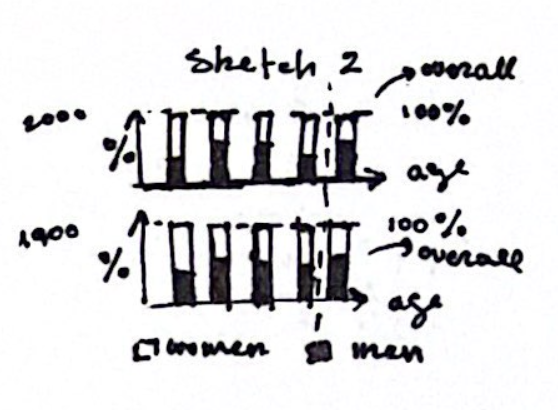 Sketch 2
overall
2000
100%
%
age
1900
100%
overall
%
age
women
men